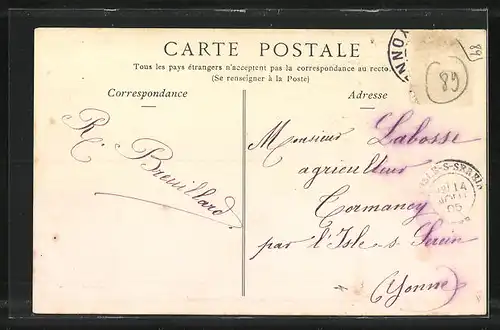 CARTE POSTALE
Tous les pays étrangers n'acceptent pas la correspondance au recto.
(Se renseigner à la Poste)
Correspondance
Adresse
89
89
YONNE
R. Brouillard
Monsieur Labosse
agriculteur
Cormancy
par l'Isle-s Serein
(Yonne)
ISLE-S-SEREIN
14
05